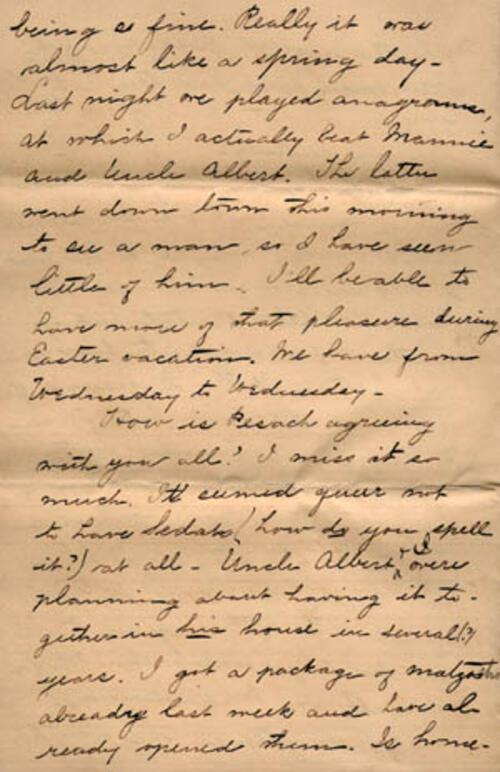 being so fine. Really it was
almost like a spring day-
Last night we played anagrams,
at which I actually beat Mannie
and Uncle Albert. The latter
went down town this morning
to see a man, so I have seen
little of him. I'll be able to
have more of that pleasure during
Easter vacation. We have from
Wednesday to Wednesday-
How is Pesach agreeing
with you all? I miss it so
much. It seemed queer not
to have Sedah (how do you spell
it?) at all - Uncle Albert & I were
planning about having it to-
gether in his house in several(?)
years. I got a package of matzoths
already last week and have al-
ready opened them. Is home-